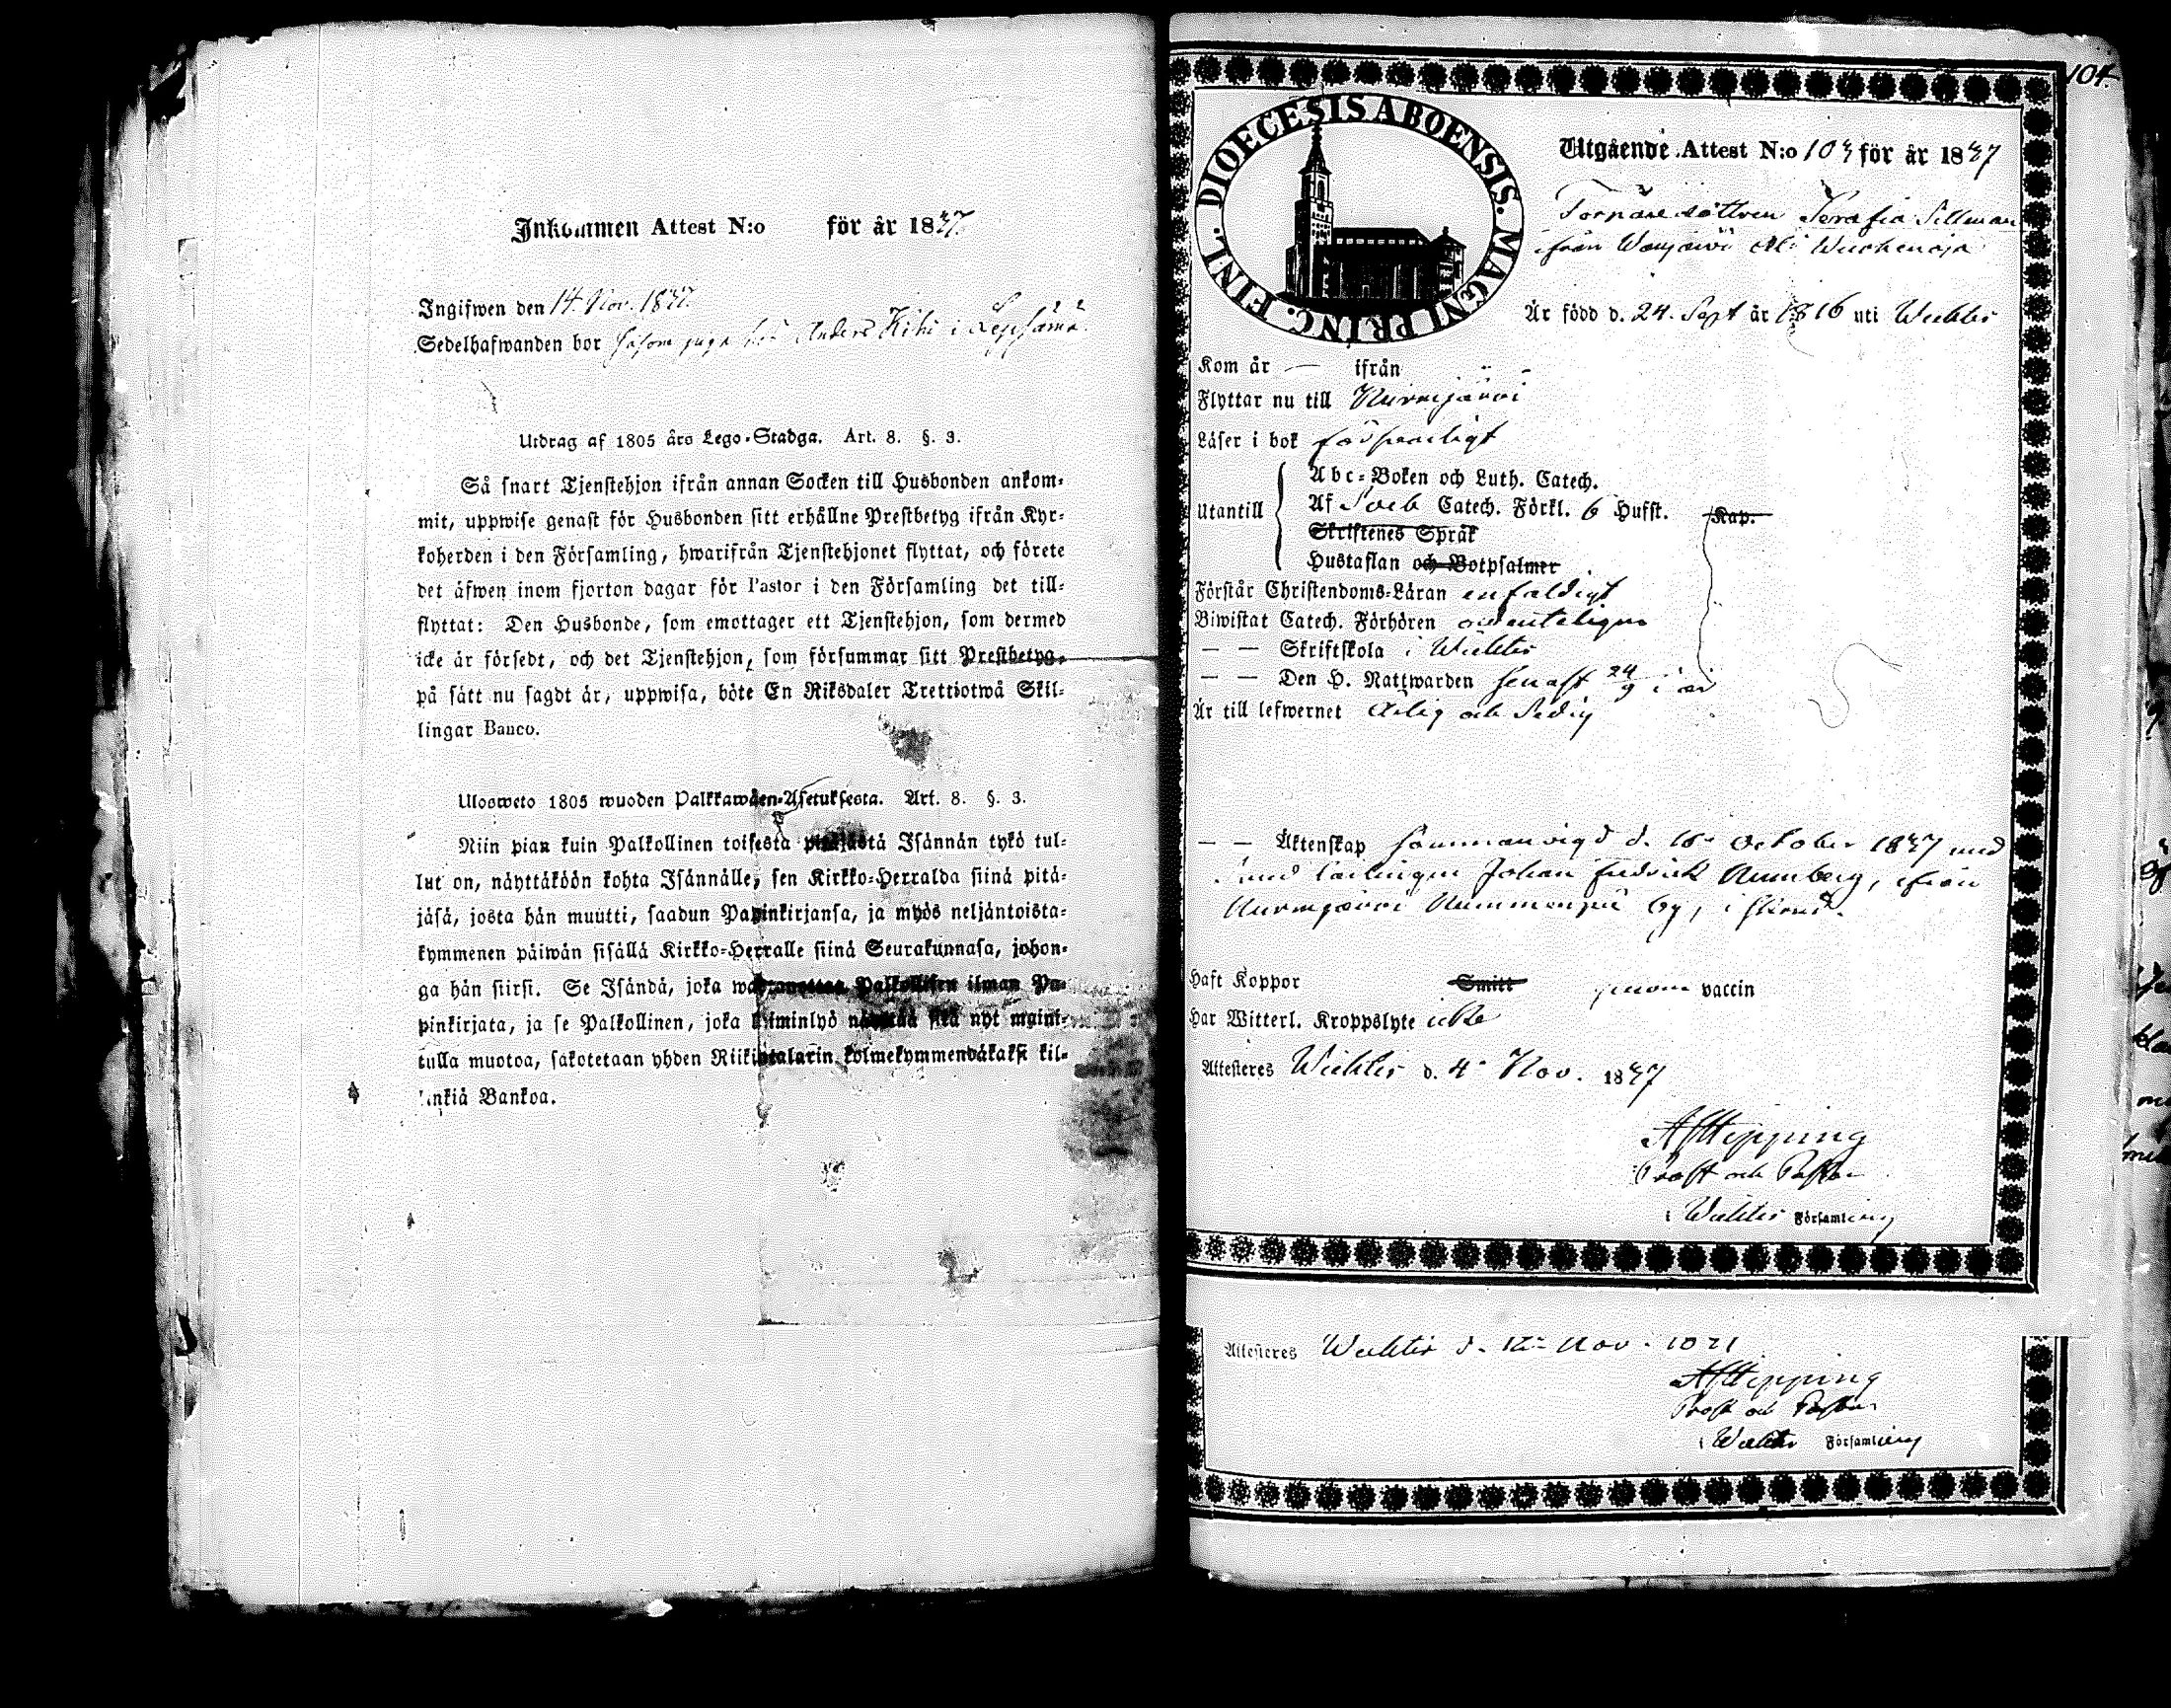 Inkommen Attest N:o för år 1837.
Ingifwen den 14 Nov. 1837.
Sedelhafwanden bor såsom hos Anders Kihi i Lepsämä.
Utdrag af 1805 års Lego-Stadga. Art. 8. §. 3.
Så snart Tjenstehjon ifrån annan Socken till Husbonden ankom-
mit, uppwise genast för Husbonden sitt erhållne Prestbetyg ifrån Kyr-
koherden i den Församling, hwarifrån Tjenstehjonet flyttat, och förete
det äfwen inom fjorton dagar för Pastor i den Församling det till-
flyttat: Den Husbonde, som emottager ett Tjenstehjon, som dermed
icke är försedt, och det Tjenstehjon, som försummar sitt Prestbetyg,
på sätt nu sagdt är, uppwisa, böte En Riksdaler Trettiotwå Skil-
lingar Banco.
Ulosweto 1805 wuoden Palkkawäen-Asetuksesta. Art. 8. §. 3.
Niin pian kuin Palkollinen toisesta pitäjästä Isännän tykö tul-
lut on, näyttäköön kohta Isännälle, sen Kirkko-Herralda siinä pitä-
jäsä, josta hän muutti, saadun Papinkirjansa, ja myös neljäntoista-
kymmenen päiwän sisällä Kirkko-Herralle siinä Seurakunnasa, johon-
ga hän siirsi. Se Isändä, joka Palkollisen ilman Pa-
pinkirjata, ja se Palkollinen, joka laiminlyö näyttää sitä nyt maini-
tulla muotoa, sakotetaan yhden Riikintalarin kolmekymmendäkaksi kil-
linkiä Bankoa.
104.
DIOECESIS ABOENSIS. MAGNI PRINC. FINL.
Utgående Attest N:o 103 för år 1837
Tornaredottren Serafia Sillman
ifrån Wanjärvi
Är född d. 24. Sept år 1816 uti Wichtis
Kom år — ifrån
Flyttar nu till Nurmijärvi
Läser i bok förswarligt
Utantill
Abc-Boken och Luth. Catech.
Af Sveb Catech. Förkl. 6 Hufst. Kap.
Skriftenes Språk
Hustaflan och Botpsalmer
Förstår Christendoms-Läran enfaldigt
Biwistat Catech. Förhören ordenteligen
— — Skriftskola i Wichtis
— — Den H. Nattwarden senast 24/9 i år
Är till lefwernet ärlig och Sedig
— — Äktenskap Sammanvigd d. 18 October 1837 med
Johan Fredrick Numberg, ifrån
Nurmijärvi Nummenpää by,
Haft Koppor Smitt genom vaccin
Har Witterl. Kroppslyte icke
Attesteres Wichtis d. 4 Nov. 1837
AJHipping
Prost och Pastor
i Wichtis Församling
Attesteres Wichtis d. 12 Nov.
AJHipping
Prost och Pastor
i Wichtis Församling